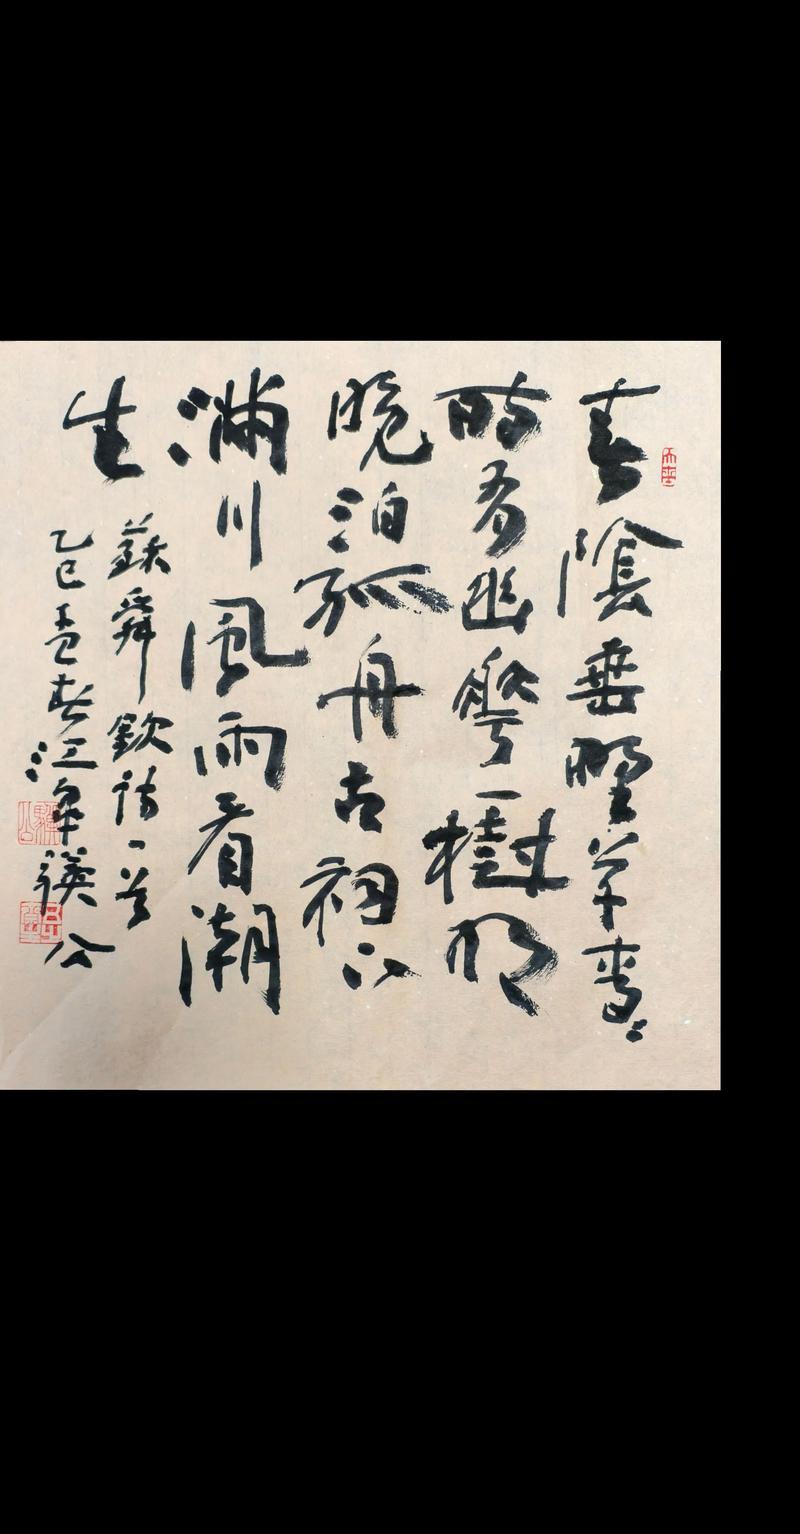 春陰垂野草青〻
時有幽花一樹明
晚泊孤舟古祠下
滿川風雨看潮
生
蘇舜欽詩一首
乙巳孟春江皋
公